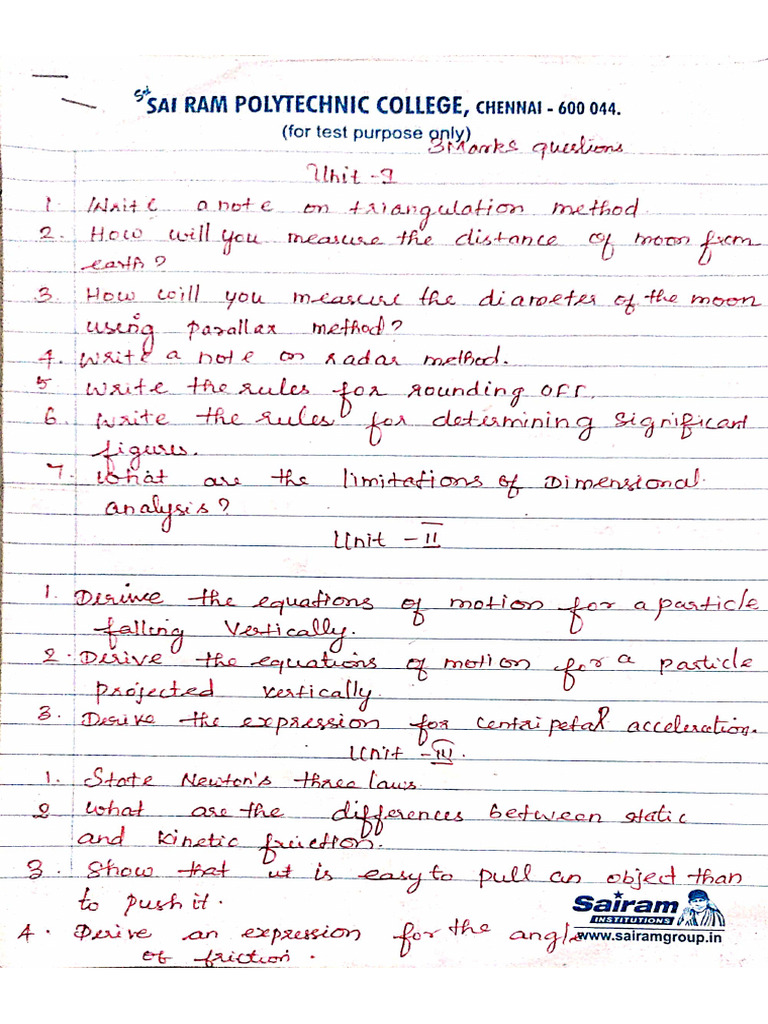 Sri
SAI RAM POLYTECHNIC COLLEGE, CHENNAI - 600 044.
(for test purpose only)
3Marks questions
Unit - I
1. Write a note on triangulation method.
2. How will you measure the distance of moon from
earth?
3. How will you measure the diameter of the moon
using parallax method?
4. Write a note on radar method.
5 Write the rules for rounding off.
6. Write the rules for determining significant
figures.
7. What are the limitations of Dimensional
analysis?
Unit - II
1. Derive the equations of motion for a particle
falling vertically.
2. Derive the equations of motion for a particle
projected vertically.
3. Derive the expression for centripetal acceleration.
Unit - III
1. State Newton's three laws.
2 What are the differences between static
and kinetic friction.
3. Show that it is easy to pull an object than
to push it.
Sairam
INSTITUTIONS
4. Derive an expression for the angle
www.sairamgroup.in
of friction.